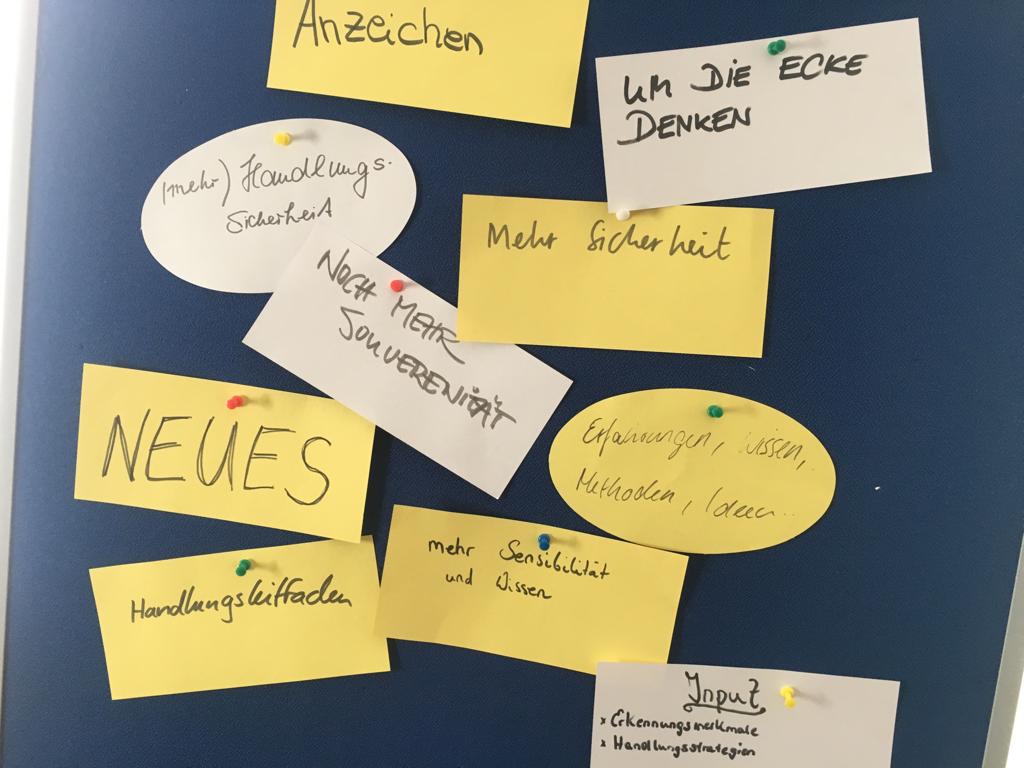 Anzeichen
UM DIE ECKE
DENKEN
(mehr) Handlungs-
sicherheit
Mehr Sicherheit
NOCH MEHR
SOUVERENITÄT
NEUES
Erfahrungen, Wissen,
Methoden, Ideen...
mehr Sensibilität
und Wissen
Handlungsleitfaden
Input
x Erkennungsmerkmale
x Handlungsstrategien